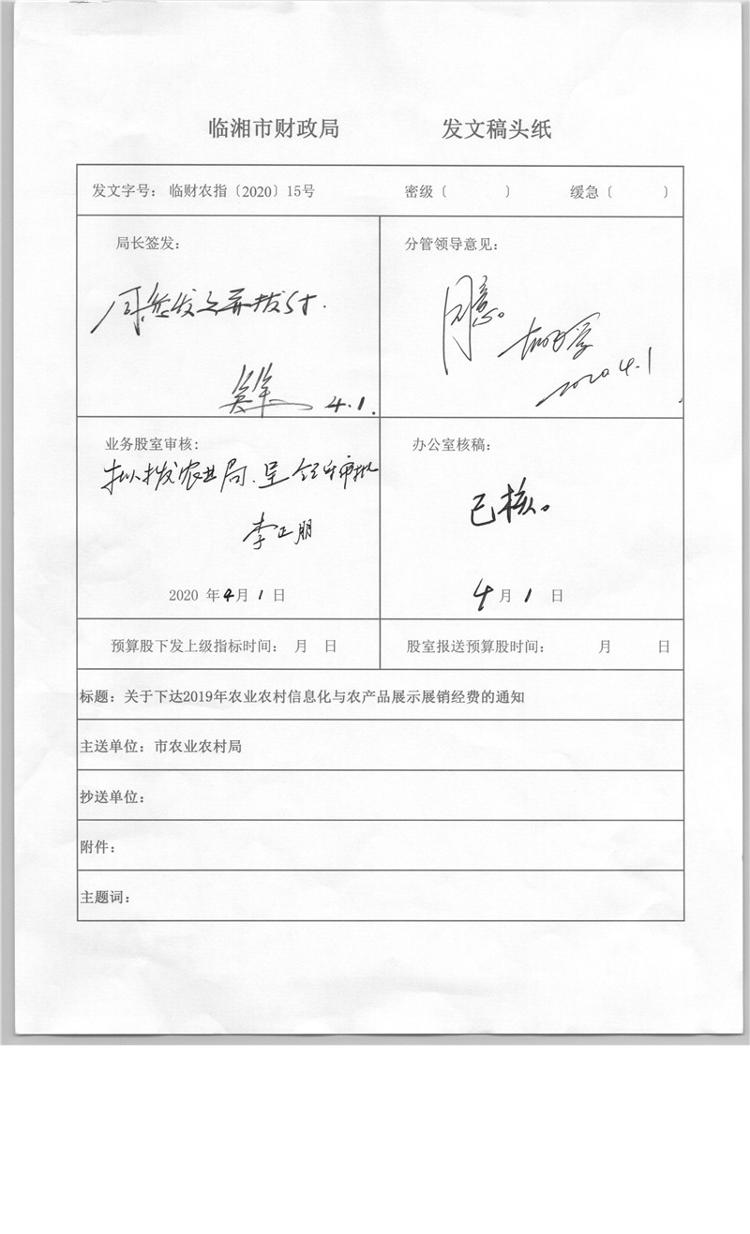 临湘市财政局 发文稿头纸
发文字号： 临财农指〔2020〕15号 密级〔 〕 缓急〔 〕
局长签发：
同意签发并拨付.
4.1.
分管领导意见：
同意。
2020 4.1
业务股室审核:
拟拨农业局、呈领导审批
李正朋
2020 年4月 1 日
办公室核稿：
已核。
4月 1 日
预算股下发上级指标时间： 月 日
股室报送预算股时间： 月 日
标题：关于下达2019年农业农村信息化与农产品展示展销经费的通知
主送单位：市农业农村局
抄送单位：
附件：
主题词：